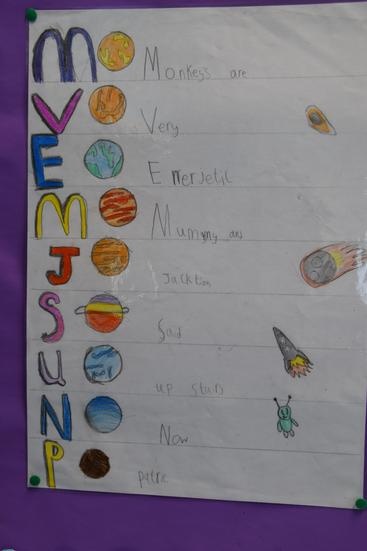 M Monkeys are
V Very
E Enerjetic
M Mummy and
J Jackson
S Sad
U up stars
N Now
P patric